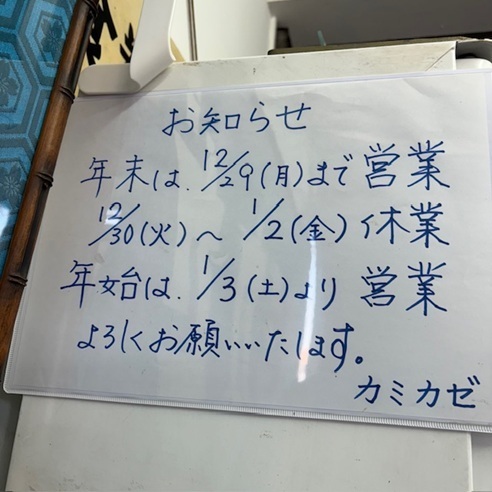 お知らせ
年末は、12/29(月)まで営業
12/30(火)~1/2(金)休業
年始は、1/3(土)より営業
よろしくお願いいたします。
カミカゼ